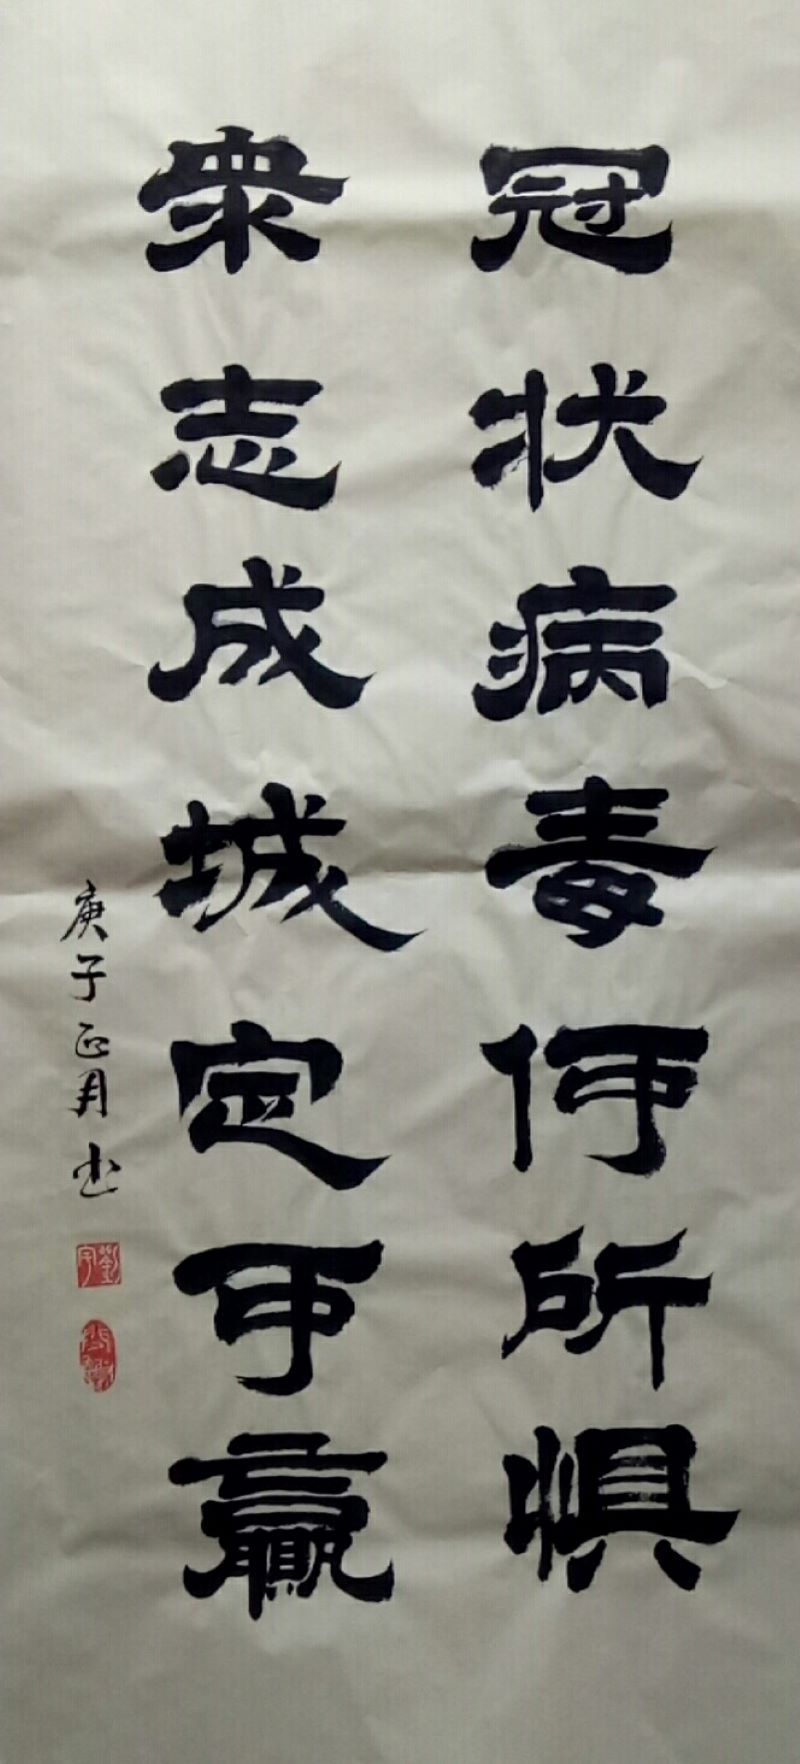 冠状病毒何所惧
衆志成城定可赢
庚子正月书
劉宇